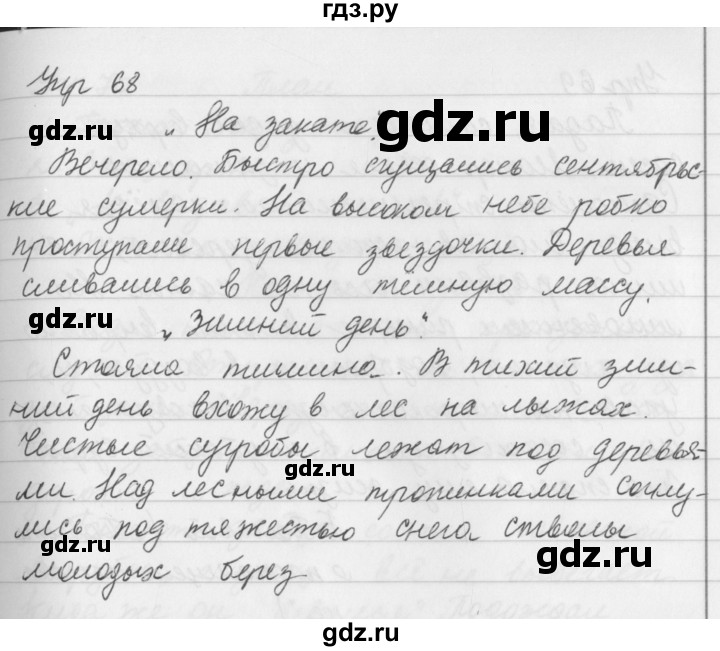 гдз.ру
Упр 68
„На закате."
Вечерело. Быстро сгущались сентябрьс-
кие сумерки. На высоком небе робко
проступали первые звездочки. Деревья
сливались в одну тёмную массу.
„Зимний день".
Стояла тишина. В тихий зим-
ний день вхожу в лес на лыжах.
Чистые сугробы лежат под деревья-
ми. Над лесными тропинками согну-
лись под тяжестью снега стволы
молодых берез
gdz.ru
gdz.ru
gdz.ru
gdz.ru
gdz.ru
gdz.ru
gdz.ru
gdz.ru